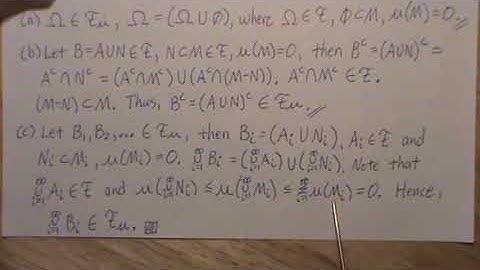 (a) Ω ∈ ℱμ, Ω = (Ω ∪ ∅), where Ω ∈ ℱ, ∅ ⊂ M, μ(M) = 0. //
(b) Let B = A∪N ∈ ℱ, N ⊂ M ∈ ℱ, μ(M) = 0, then Bᶜ = (A∪N)ᶜ =
Aᶜ ∩ Nᶜ = (Aᶜ ∩ Mᶜ) ∪ (Aᶜ ∩ (M-N)). Aᶜ ∩ Mᶜ ∈ ℱ.
(M-N) ⊂ M. Thus, Bᶜ = (A∪N)ᶜ ∈ ℱμ. //
(c) Let B₁, B₂, ... ∈ ℱμ, then Bᵢ = (Aᵢ ∪ Nᵢ), Aᵢ ∈ ℱ and
Nᵢ ⊂ Mᵢ, μ(Mᵢ) = 0. ∞∪i=1 Bᵢ = (∞∪i=1 Aᵢ) ∪ (∞∪i=1 Nᵢ). Note that
∞∪i=1 Aᵢ ∈ ℱ and μ(∞∪i=1 Nᵢ) ≤ μ(∞∪i=1 Mᵢ) ≤ ∞Σi=1 μ(Mᵢ) = 0. Hence,
∞∪i=1 Bᵢ ∈ ℱμ.